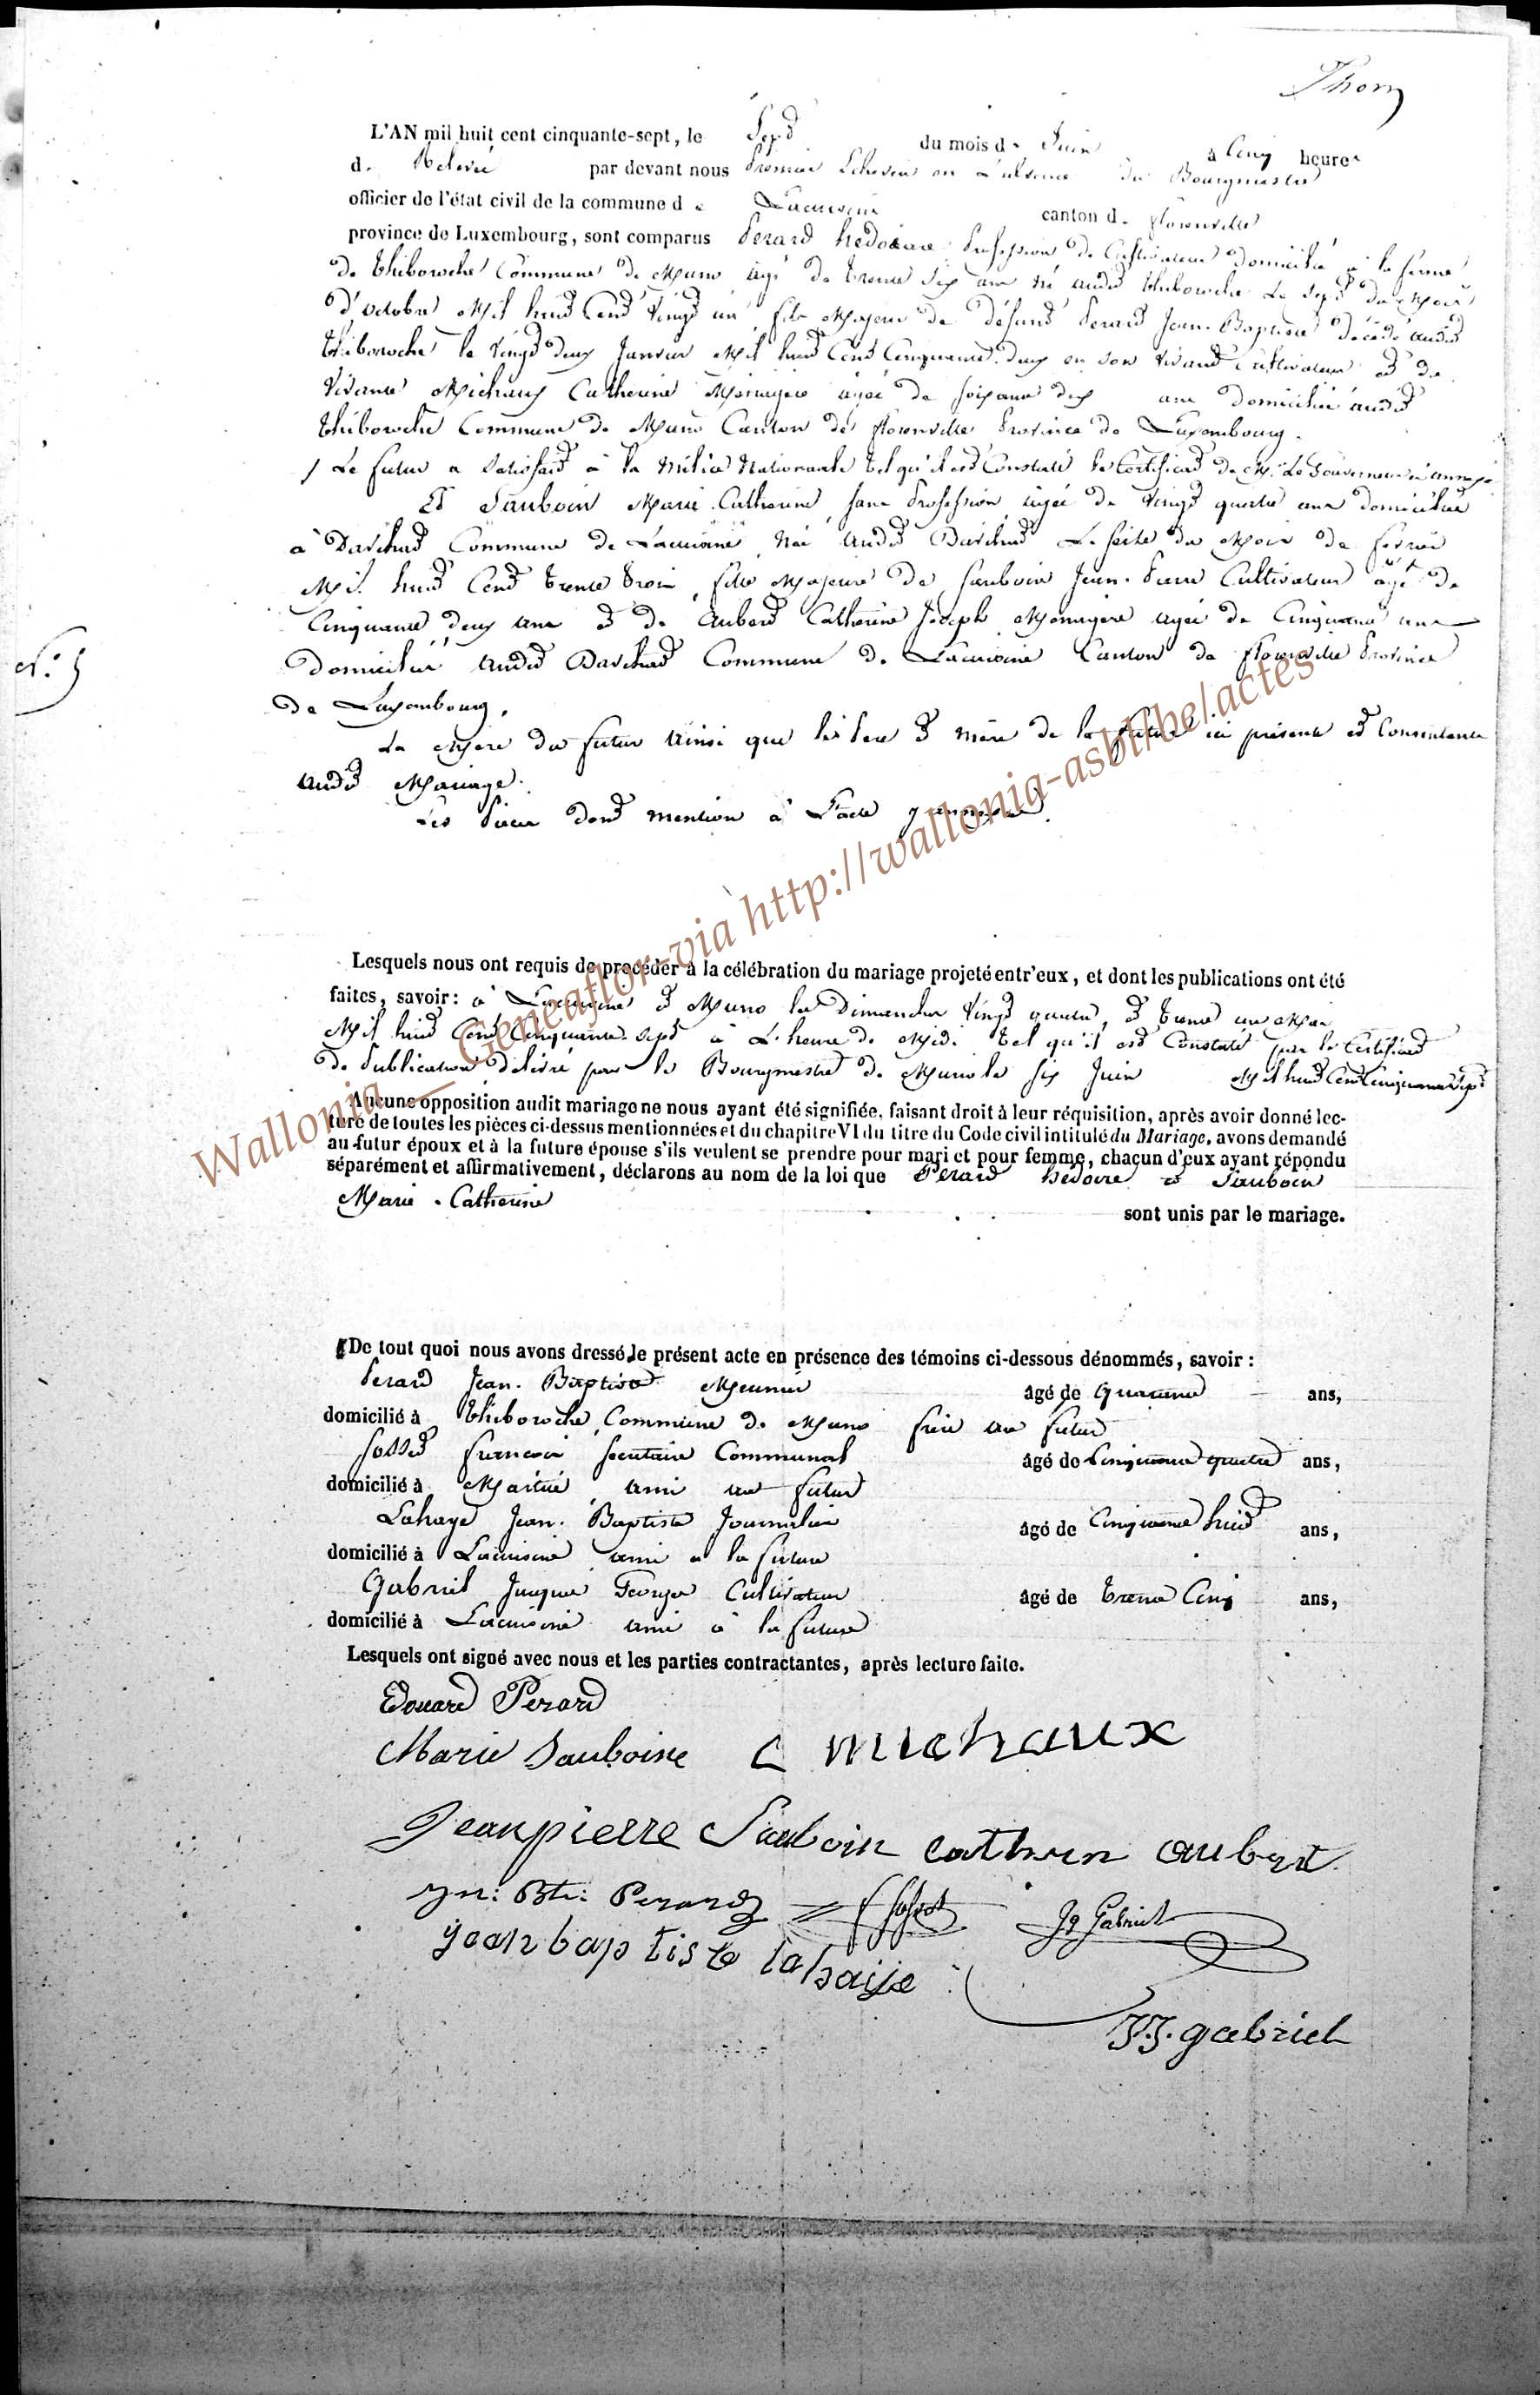 Thom
L'AN mil huit cent cinquante-sept, le Sept du mois de Juin à Cinq heures
de Relevée par devant nous Premier Echevin en l'absence du Bourgmestre
officier de l'état civil de la commune de Lacuisine canton de florenville
province de Luxembourg, sont comparus Perard hédouard Profession de Cultivateur domicilié à la ferme
de thiboroche Commune de Muno agé de trente six ans né audit thiboroche Le Sept du Mois
d'octobre Mil huit Cent Vingt un, fils Majeur de défunt Perard Jean-Baptiste décédé audit
thiboroche le Vingt deux Janvier Mil huit Cent Cinquante-deux en son vivant Cultivateur et de
Vivante Michaux Catherine Menagère agée de soixante dix ans domiciliée audit
thiboroche Commune de Muno Canton de florenville Province de Luxembourg.
/ Le futur a Satisfait à la Milice Nationale tel qu'il est Constaté le Certificat de M. Le Gouverneur ci annexé
Et Sauboin Marie-Catherine, sans Profession, agée de Vingt quatre ans domiciliée
à Commune de Lacuisine, Née audit Le seize du Mois de février
Mil huit Cent trente trois, fille Majeure de Sauboin Jean-Pierre Cultivateur âgé de
Cinquante deux ans et de Aubert Catherine Joseph Menagère agée de Cinquante ans
domiciliés audit Commune de Lacuisine Canton de florenville Province
de Luxembourg.
La Mère du futur ainsi que les Père et mère de la future ici présents et Consentants
audit Mariage.
Les Pièces dont mention à L'acte y annexées.
N: 5
Lesquels nous ont requis de procéder à la célébration du mariage projeté entr'eux, et dont les publications ont été
faites, savoir: à Lacuisine et Muno les Dimanches Vingt quatre, et trente un Mai
Mil huit Cent Cinquante-Sept à L'heure de Midi tel qu'il est Constaté par le Certificat
de Publication délivré par le Bourgmestre de Muno le six Juin Mil huit Cent Cinquante Sept
Aucune opposition audit mariage ne nous ayant été signifiée, faisant droit à leur réquisition, après avoir donné lec-
ture de toutes les pièces ci-dessus mentionnées et du chapitre VI du titre du Code civil intitulé du Mariage, avons demandé
au futur époux et à la future épouse s'ils veulent se prendre pour mari et pour femme, chacun d'eux ayant répondu
séparément et affirmativement, déclarons au nom de la loi que Perard et Sauboin
Marie-Catherine
sont unis par le mariage.
De tout quoi nous avons dressé le présent acte en présence des témoins ci-dessous dénommés, savoir :
Perard Jean-Baptiste Meunier agé de Quarante ans,
domicilié à thiboroche, Commune de Muno frère au futur
fosset francois secretaire Communal agé de Cinquante quatre ans,
domicilié à Martué, ami au futur
Lahaye Jean-Baptiste Journalier agé de Cinquante huit ans,
domicilié à Lacuisine ami a la future
Gabriel Jacques George Cultivateur agé de trente Cinq ans,
domicilié à Lacuisine ami à la future
Lesquels ont signé avec nous et les parties contractantes, après lecture faite.
Edouard Perard
Marie Sauboine C michaux
Jeanpierre Sauboin cathrin aubert
Jn: Bte: Perard F fosset Jq Gabriel
jean baptiste lahaije
J.J. gabriel
Wallonia _ Geneaflor-via http://wallonia-asbl.be/actes